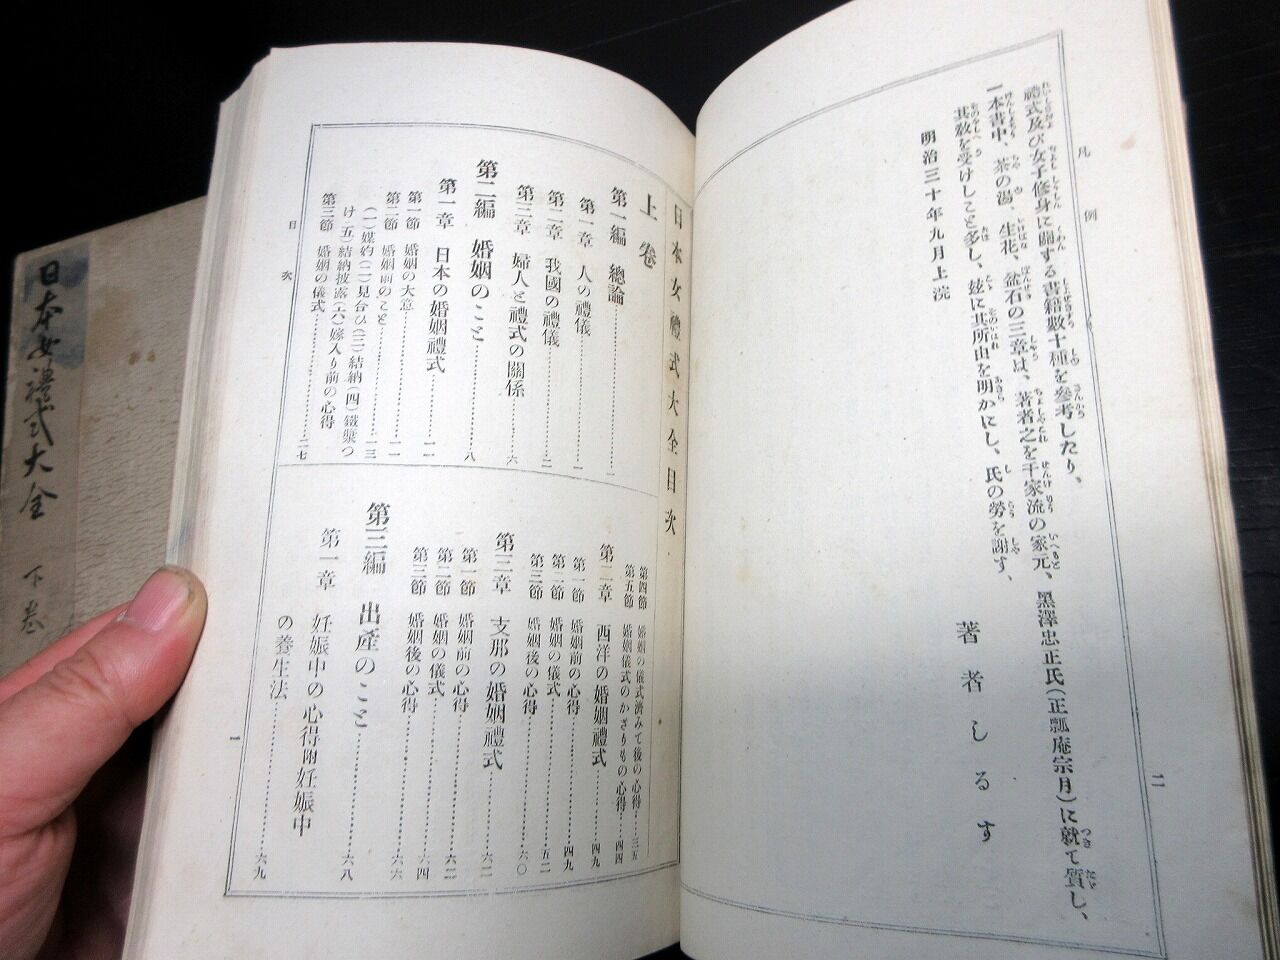 凡例
禮式及び女子修身に關する書籍數十種を參考したり、
一本書中、茶の湯、生花、盆石の三章は、著者之を千家流の家元、黑澤忠正氏(正瓢庵宗月)に就て質し、
其敎を受けしこと多し、玆に其所由を明かにし、氏の勞を謝す、
明治三十年九月上浣
著者しるす
二
日本女禮式大全目次
上卷
第一編 總論……一
第一章 人の禮儀……一
第二章 我國の禮儀……二
第三章 婦人と禮式の關係……六
第二編 婚姻のこと……八
第一章 日本の婚姻禮式……一一
第一節 婚姻の大意……一一
第二節 婚姻前のこと……一一
(一)媒妁(二)見合ひ(三)結納(四)鐵漿つ……一三
け(五)結納披露(六)嫁入り前の心得
第三節 婚姻の儀式……二七
第四節 婚姻の儀式濟みて後の心得……三五
第五節 婚姻儀式のかざりもの心得……四四
第二章 西洋の婚姻禮式……四九
第一節 婚姻前の心得……四九
第二節 婚姻の儀式……五二
第三節 婚姻後の心得……六〇
第三章 支那の婚姻禮式……六二
第一節 婚姻前の心得……六二
第二節 婚姻の儀式……六四
第三節 婚姻後の心得……六六
第三編 出產のこと……六八
第一章 妊娠中の心得附妊娠中
の養生法……六九
目次
一
日本女禮式大全 下卷